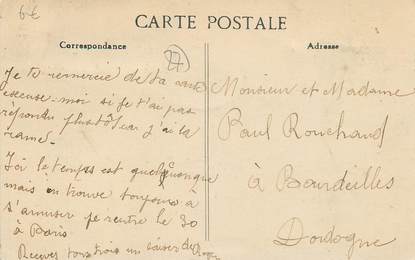 6€
CARTE POSTALE
Correspondance
Adresse
27
Je te remercie de ta carte
excuse-moi si je t'ai pas
répondu plustôt car j'ai la
rame.
Ici le temps est quelquonque
mais on trouve toujours a
s'amuser je rentre le 30
à Paris
Recevez tous trois un baiser de Roger
Monsieur et Madame
Paul Rouchaud
à Bourdeilles
Dordogne